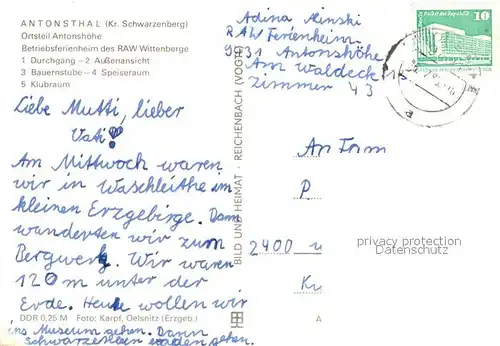 ANTONSTHAL (Kr. Schwarzenberg)
Ortsteil Antonshöhe
Betriebsferienheim des RAW Wittenberge
1 Durchgang – 2 Außenansicht
3 Bauernstube – 4 Speiseraum
5 Klubraum
Liebe Mutti, lieber
Vati!
Am Mittwoch waren
wir in Waschleithe im
kleinen Erzgebirge. Dann
wanderten wir zum
Bergwerk. Wir waren
120 m unter der
Erde. Heute wollen wir
ins Museum gehen. Dann
baden gehen.
DDR 0,25 M Foto: Karpf, Oelsnitz (Erzgeb.)
BILD UND HEIMAT · REICHENBACH (VOGTL
Adina
RAW Ferienheim
9431 Antonshöhe
Am Waldeck
Zimmer 43
10
An Fam
P
2400
privacy protection
Datenschutz
A